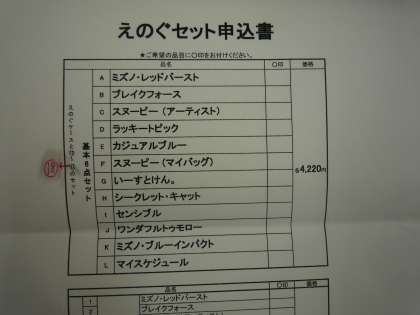 えのぐセット申込書
★ご希望の品目に〇印をお付けください。
品名 〇印 価格
基本8点セット
A ミズノ・レッドバースト
B ブレイクフォース
C スヌーピー（アーティスト）
D ラッキートピック
E カジュアルブルー
F スヌーピー（マイバッグ）
G いーすとけん。
H シークレット・キャット
I センシブル
J ワンダフルトゥモロー
K ミズノ・ブルーインパクト
L マイスケジュール
4,220円
品名 〇印 価格
1 ミズノ・レッドバースト
2 ブレイクフォース